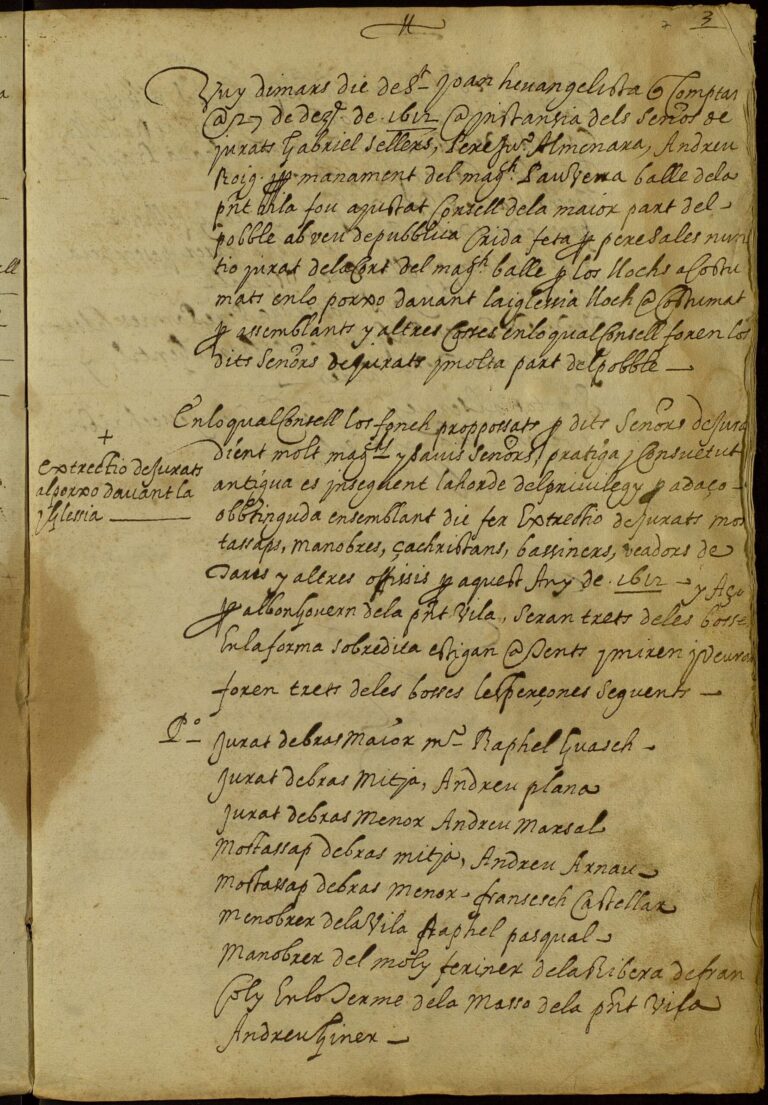 3
Vuy dimars die de St Joan hevangelista y Comptam
@ 27 de dezr de 1612 @ instansia dels Señors de
jurats Gabriel Sellers, Pere Jua Almenara, Andreu
Roig. per manament del magch Pau Verra balle dela
pnt vila fou ajustat Consell dela maior part del
pobble ab veu de pubblica Crida feta per pere Sales nun
tio jurat dela Cort del magch balle per los llochs acostu
mats enlo porxo davant la iglessia lloch @costumat
per assemblants y altres Cosses Enlo qual Consell foren los
dits Señors de jurats y molta part del pobble —
En lo qual Consell los fonch propossats per dits Señors de Jura
dient molt magchs y savis Señors, pratiga y Consuetut
antigua es inseguent la horde del privilegy per adaço —
obbtinguda en semblant die fer Extrectio de jurats mos
tassaps, manobres, çachristans, bassiners, veadors de
Dans y altres offissis per aquest Any de 1612 — y Aço
per al bon Govern dela pnt Vila, Seran trets deles bosse
En la forma sobredita estigan @tents y miren y veuran
foren trets deles bosses les persones seguents —
+
extrectio de Jurats
al porxo davant la
yglessia —
Po
Jurat de bras maior mr Raphel Guasch —
Jurat de bras Mitja, Andreu plana
Jurat de bras Menor Andreu Marsal
Mostassap de bras mitja, Andreu Arnau —
Mostassap de bras menor — fransesch Castellar
menobrer dela Vila Raphel pasqual —
Manobrer del moly feriner dela Ribera de fran
Coly En lo Terme dela Masso dela pnt Vila
Andreu Giner —